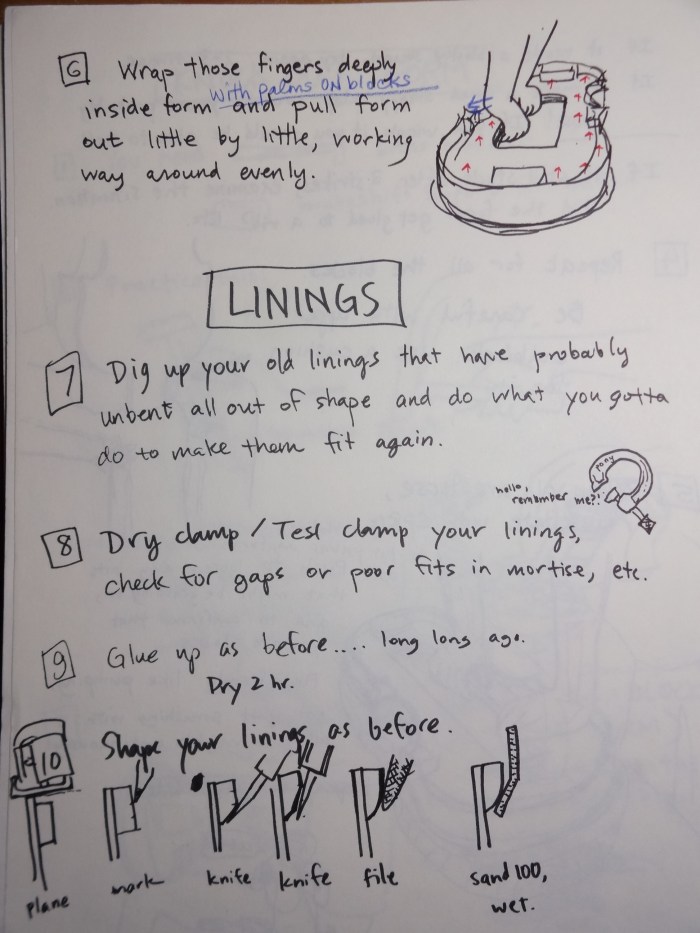 6 Wrap those fingers deeply
with palms ON blocks
inside form and pull form
out little by little, working
way around evenly.
LININGS
7 Dig up your old linings that have probably
unbent all out of shape and do what you gotta
do to make them fit again.
pony
hello,
remember me?!
8 Dry clamp / Test clamp your linings,
check for gaps or poor fits in mortise, etc.
9 Glue up as before.... long long ago.
Dry 2 hr.
10 Shape your linings as before.
plane mark knife knife file sand 100,
wet.